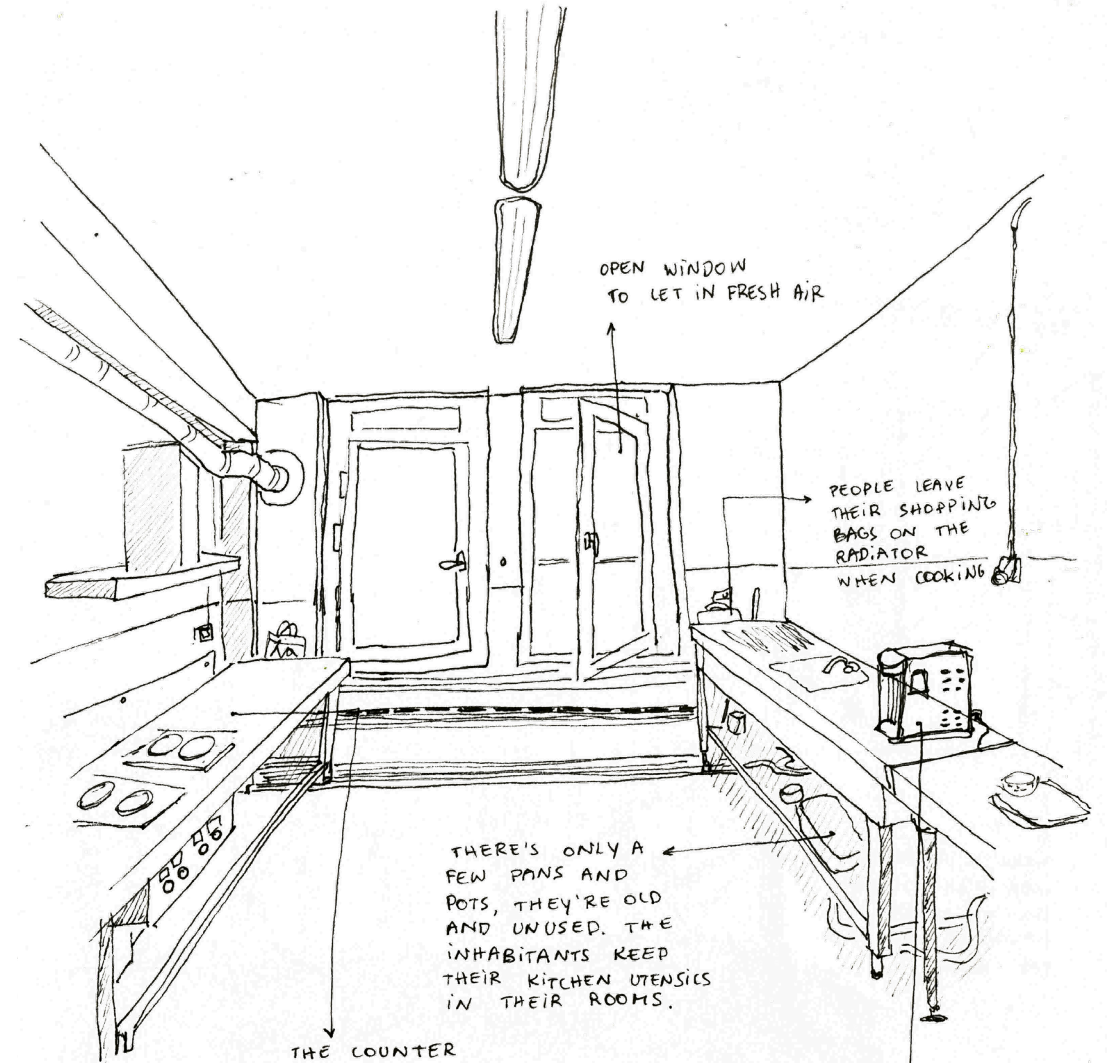 OPEN WINDOW
TO LET IN FRESH AIR
PEOPLE LEAVE
THEIR SHOPPING
BAGS ON THE
RADIATOR
WHEN COOKING
THERE'S ONLY A
FEW PANS AND
POTS, THEY'RE OLD
AND UNUSED. THE
INHABITANTS KEEP
THEIR KITCHEN UTENSILS
IN THEIR ROOMS.
THE COUNTER